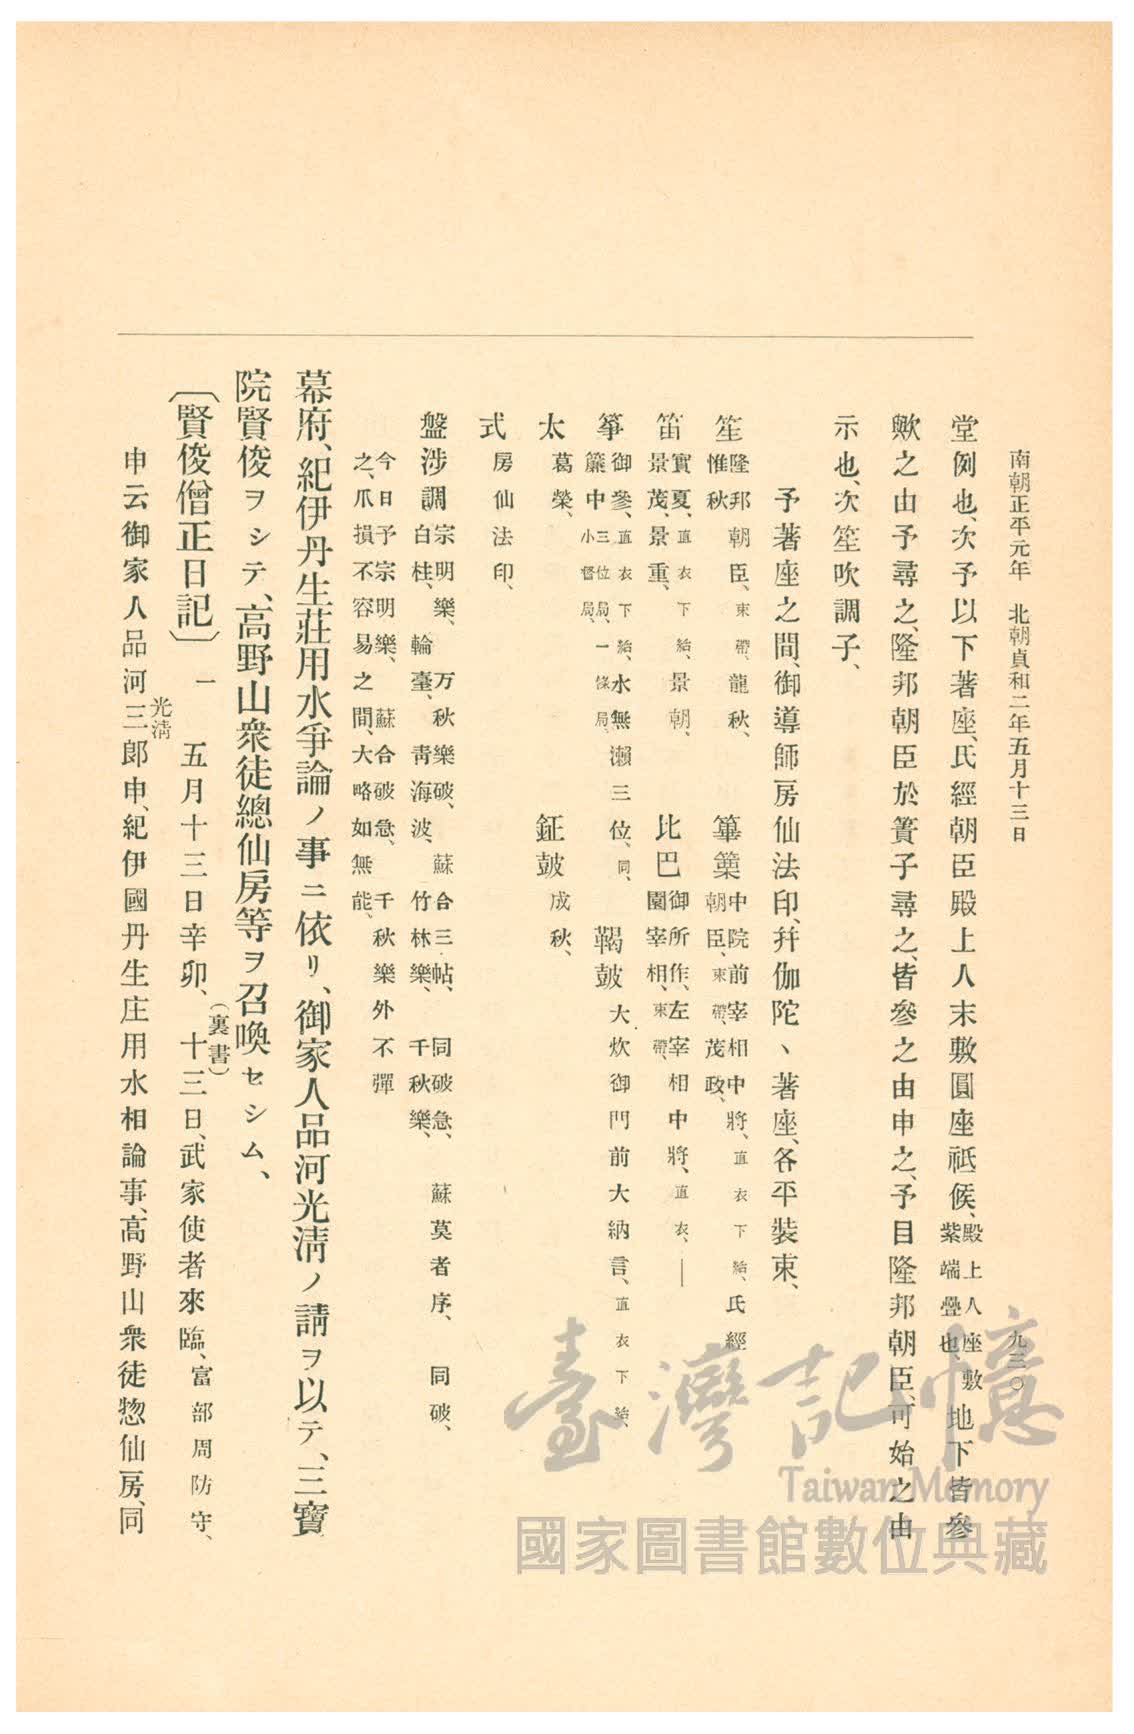 南朝正平元年　北朝貞和二年五月十三日　九三〇
堂例也、次予以下著座、氏經朝臣殿上人末敷圓座祗候、殿上人座敷紫端疊也、地下皆參
歟之由予尋之、隆邦朝臣於簀子尋之、皆參之由申之、予目隆邦朝臣、可始之由
示也、次笙吹調子、
予著座之間、御導師房仙法印、幷伽陀丶著座、各平裝束、
笙　隆邦朝臣、束帶、龍秋、惟秋　篳篥　中院前宰相中將、直衣下結、氏經朝臣、束帶、茂政、
笛　實夏、直衣下結、景朝、景茂、景重、　比巴　御所作、左宰相中將、直衣、—園宰相、束帶、
箏　御參、直衣下結、水無瀨三位、同、簾中三位局、一條局、小督局、　鞨鼓　大炊御門前大納言、直衣下結、
太　葛榮、　鉦鼓　成秋、
式　房仙法印、
盤涉調　宗明樂、万秋樂破、蘇合三帖、同破急、蘇莫者序、同破、白桂、輪臺、靑海波、竹林樂、千秋樂、
今日予宗明樂、蘇合破急、千秋樂外不彈之、爪損不容易之間、大略如無能、
幕府、紀伊丹生莊用水爭論ノ事ニ依リ、御家人品河光淸ノ請ヲ以テ、三寶
院賢俊ヲシテ、高野山衆徒總仙房等ヲ召喚セシム、
〔賢俊僧正日記〕一　五月十三日辛卯、（裏書）十三日、武家使者來臨、富部周防守、
申云御家人品河三郎光淸申、紀伊國丹生庄用水相論事、高野山衆徒惣仙房、同
臺灣記憶
Taiwan Memory
國家圖書館數位典藏